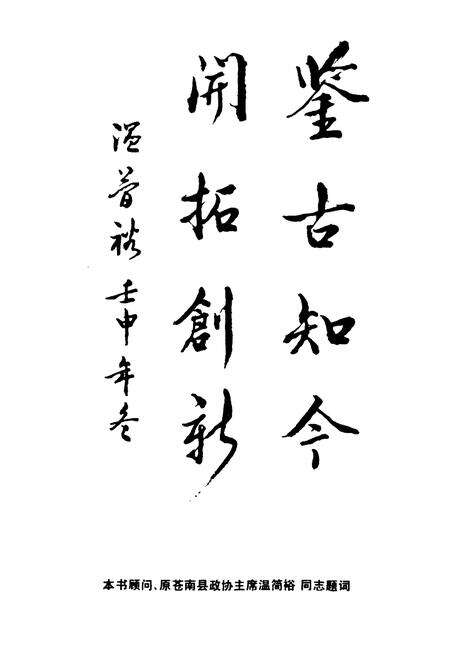 鉴古知今
開拓創新
温简裕 壬申年冬
本书顾问、原苍南县政协主席温简裕 同志题词